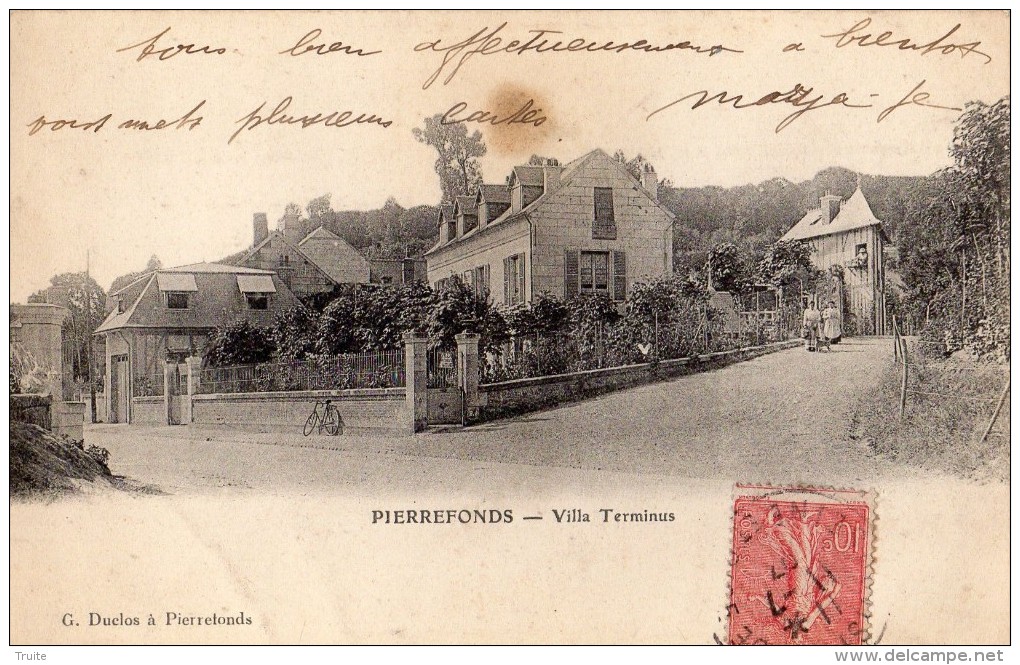 tous bien affectueusement a bientot
vous mets plusieurs cartes
PIERREFONDS — Villa Terminus
G. Duclos à Pierrefonds
10c
Truite
www.delcampe.net